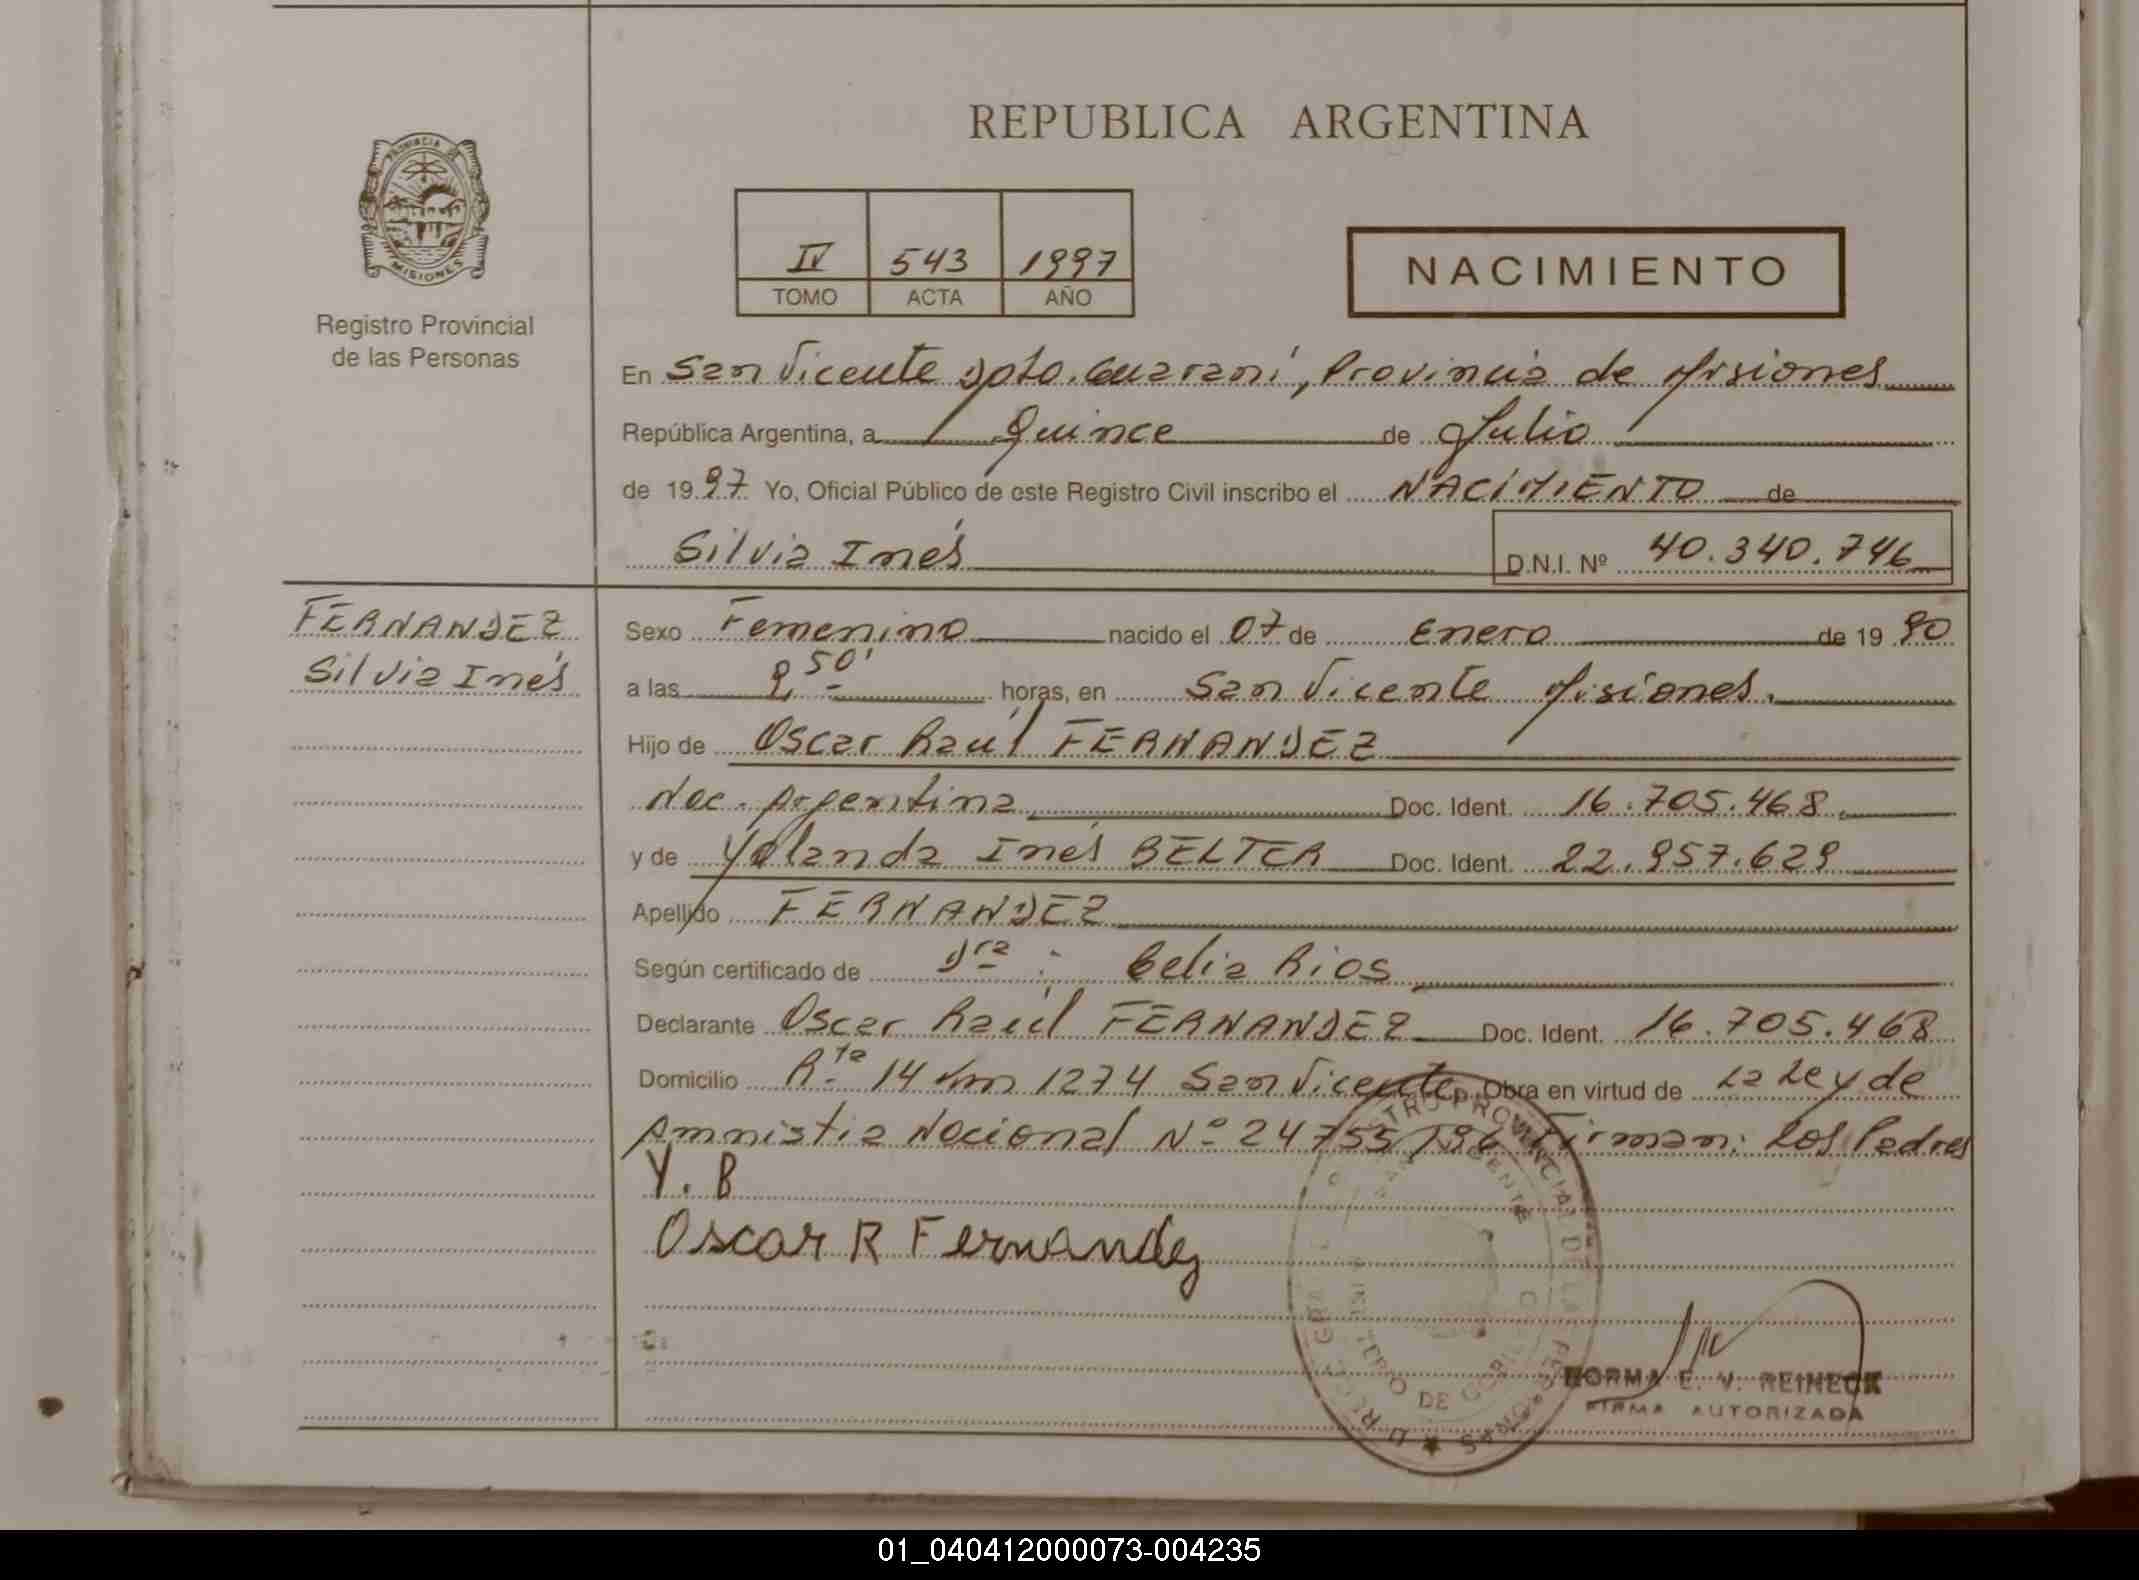 REPUBLICA ARGENTINA
PROVINCIA DE
MISIONES
Registro Provincial
de las Personas
IV 543 1997
TOMO ACTA AÑO
NACIMIENTO
En San Vicente Dpto. Guaraní, Provincia de Misiones
República Argentina, a Quince de Julio
de 1997 Yo, Oficial Público de este Registro Civil inscribo el NACIMIENTO de
Silvia Inés D.N.I. Nº 40.340.746
FERNANDEZ
Silvia Inés
Sexo Femenino nacido el 07 de Enero de 1990
a las 9 50' horas, en San Vicente Misiones.
Hijo de Oscar Raúl FERNANDEZ
Nac. Argentina Doc. Ident. 16.705.468
y de Yolanda Inés BELTER Doc. Ident. 22.957.629
Apellido FERNANDEZ
Según certificado de Dra : Celia Rios
Declarante Oscar Raúl FERNANDEZ Doc. Ident. 16.705.468
Domicilio Rta 14 km 1274 San Vicente Obra en virtud de La Ley de
Amnistia Nacional Nº 24755/96 Firman: Los Padres
Y. B
Oscar R Fernandez
NORMA E. V. REINECK
FIRMA AUTORIZADA
01_040412000073-004235